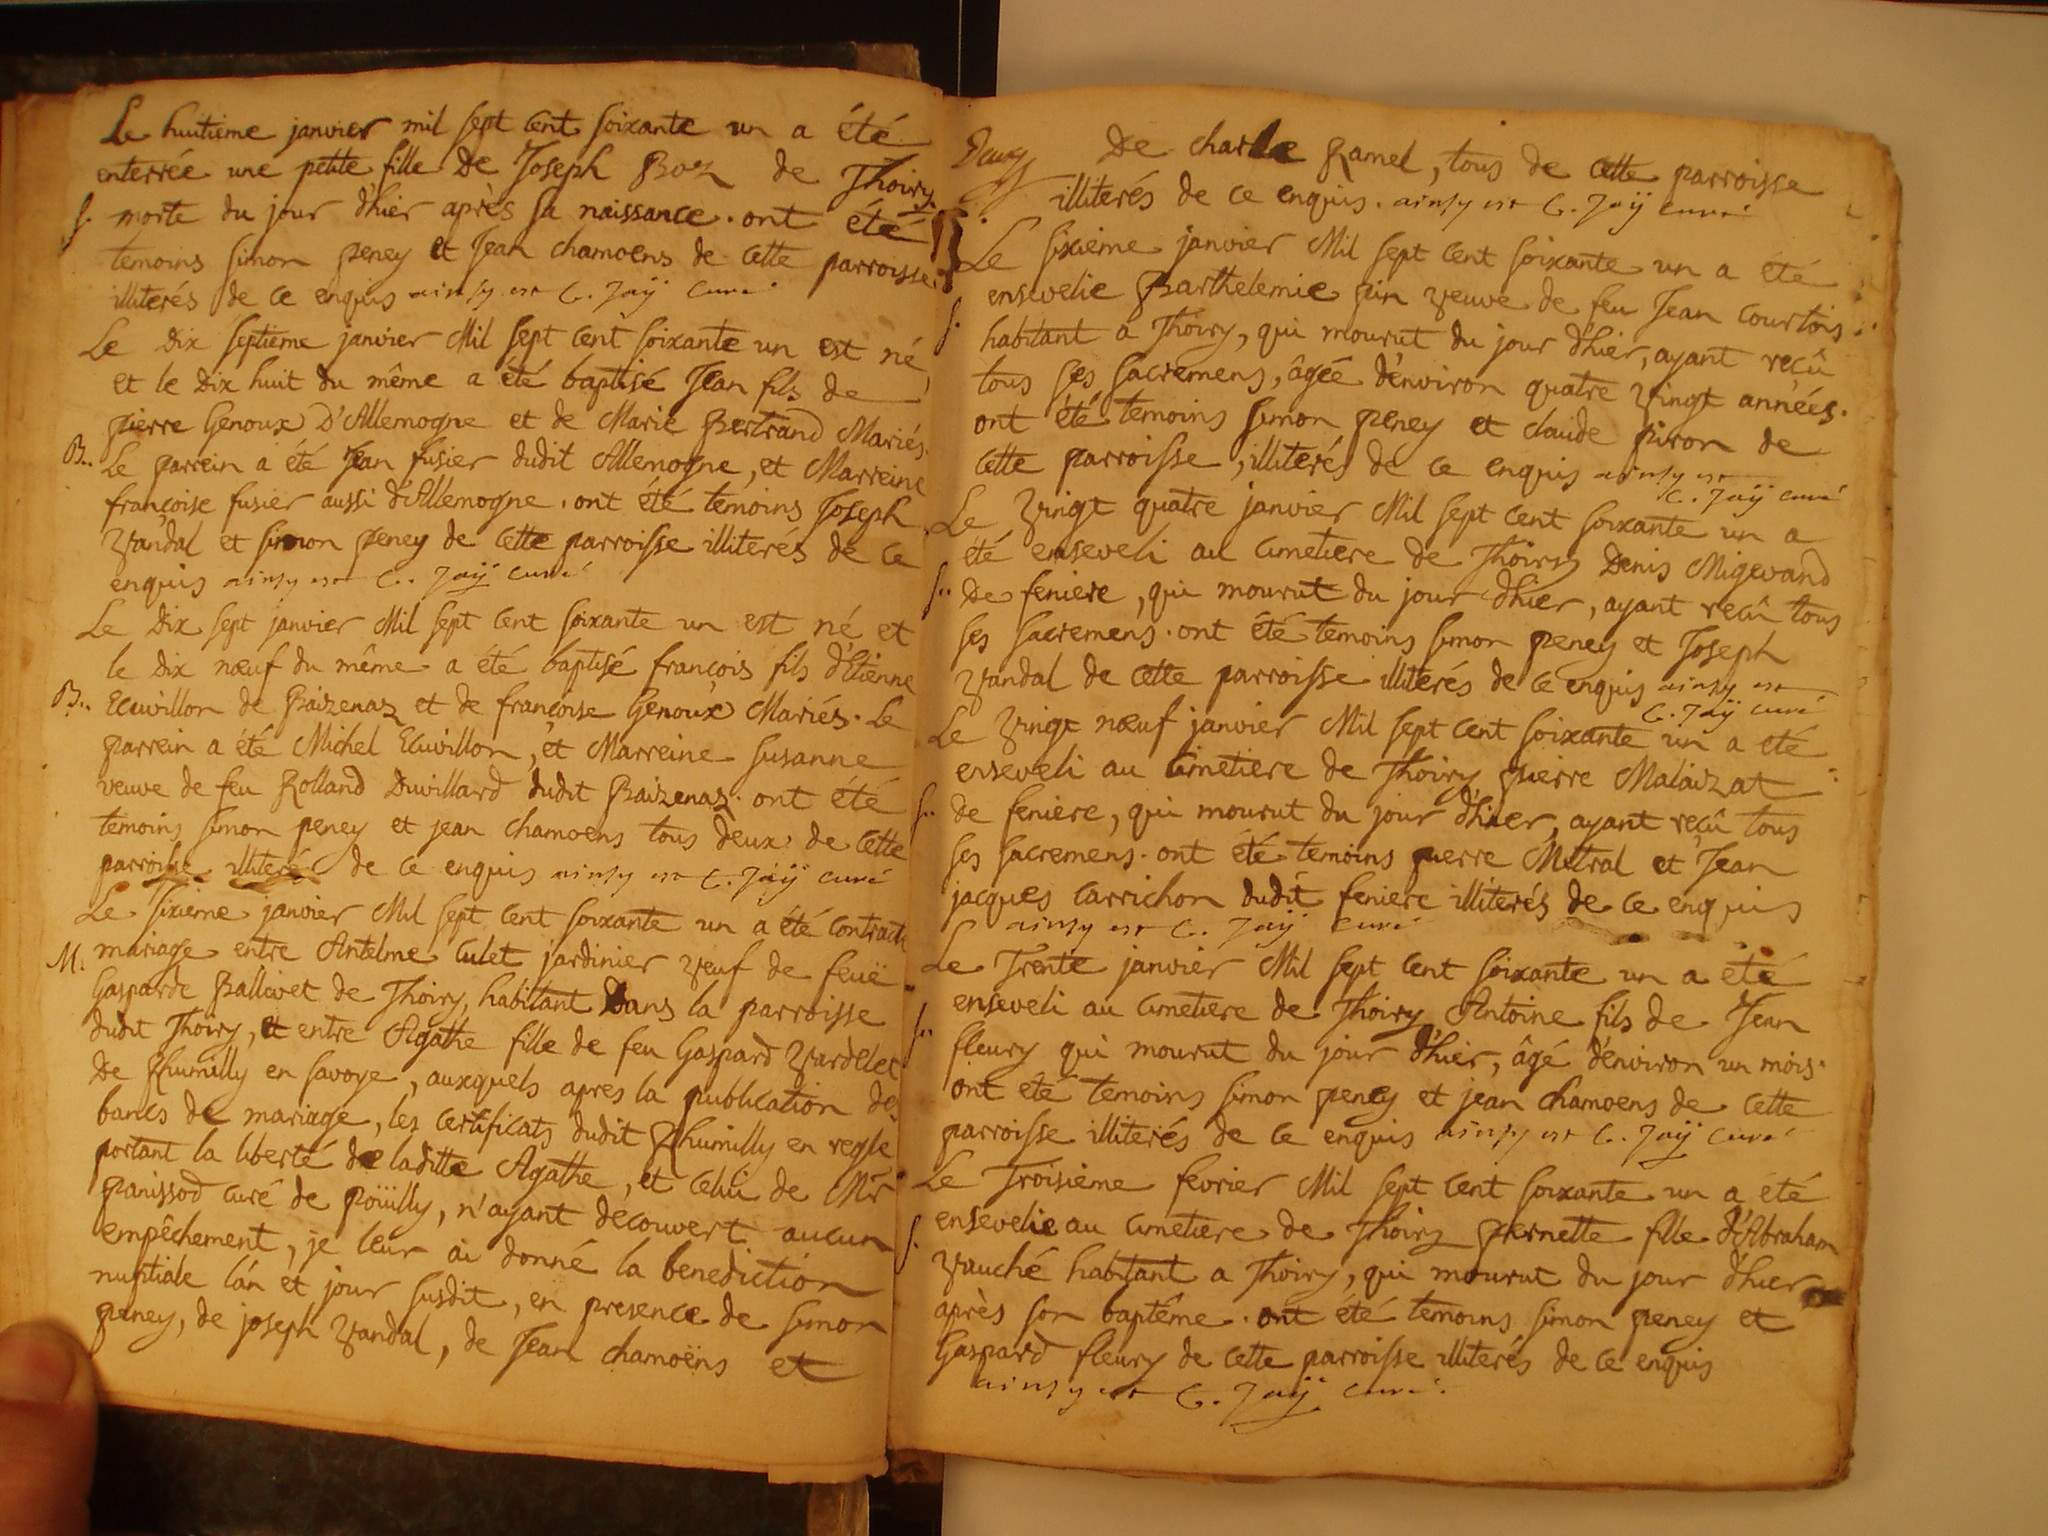 Le huitieme janvier mil sept cent soixante un a été
enterrée une petite fille De Joseph Boz de Thoiry
S. morte du jour d'hier après sa naissance. ont été
temoins simon peney et Jean chamoens de cette parroisse
illiterés de ce enquis ainsy est C. Jaÿ curé
Le Dix septieme janvier Mil sept cent soixante un est né
et le Dix huit du même a été baptisé Jean fils de
pierre Genoux D'Allemogne et de Marie Bertrand Mariés.
B.. Le parrein a été Jean fusier dudit Allemogne, et Marreine
françoise fusier aussi d'Allemogne. ont été temoins Joseph
Vandal et simon peney de cette parroisse illiterés de ce
enquis ainsy est C. Jaÿ curé
Le Dix sept janvier Mil sept cent soixante un est né et
le Dix nœuf du même a été baptisé françois fils d'Etienne
B.. Ecuvillon de Baizenaz et de françoise Genoux Mariés. Le
parrein a été Michel Ecuvillon, et Marreine susanne
veuve de feu Rolland Duvillard dudit Baizenaz. ont été
temoins simon peney et jean chamoens tous deux de cette
parroisse illiteré de ce enquis ainsy est C. Jaÿ curé
Le sixieme janvier Mil sept cent soixante un a été contracté
M. mariage entre Antelme Culet jardinier veuf de feuë
Gasparde Ballivet de Thoiry, habitant Dans la parroisse
dudit Thoiry, et entre Agathe fille de feu Gaspard Vardelet
De Rhumilly en savoye, auxquels apres la publication de
bancs de mariage, les certificats dudit Rhumilly en regle
portant la liberté de laditte Agathe, et celui de Mr
panissod curé de poüilly, n'ayant decouvert aucun
empêchement, je leur ai donné la benediction
nuptiale l'an et jour susdit, en presence de simon
peney, de joseph Vandal, de Jean chamoëns et
De charle Ramel, tous de cette parroisse
illiterés de ce enquis. ainsy est C. Jaÿ curé
Le sixieme janvier Mil sept cent soixante un a été
ensevelie Barthelemie pin veuve de feu Jean courtois
S. habitant a Thoiry, qui mourut du jour d'hier, ayant reçû
tous ses sacremens, âgée d'environ quatre vingt années.
ont été temoins simon peney et claude piron de
cette parroisse, illiterés de ce enquis ainsy est
C. Jaÿ curé
Le vingt quatre janvier Mil sept cent soixante un a
été enseveli au cimetiere de Thoiry Denis Migevand
S.. De feniere, qui mourut du jour d'hier, ayant reçû tous
ses sacremens. ont été temoins simon peney et Joseph
Vandal de cette parroisse illiterés de ce enquis ainsy est
C. Jaÿ curé
Le vingt nœuf janvier Mil sept cent soixante un a été
enseveli au cimetiere de Thoiry pierre Malaizat
S.. de feniere, qui mourut du jour d'hier, ayant reçû tous
ses sacremens. ont été temoins pierre Mètral et Jean
jacques carrichon dudit feniere illiterés de ce enquis
ainsy est C. Jaÿ curé
Le Trente janvier Mil sept cent soixante un a été
enseveli au cimetiere de Thoiry Antoine fils de Jean
S.. fleury qui mourut du jour d'hier, âgé d'environ un mois.
ont été temoins simon peney et jean chamoens de cette
parroisse illiterés de ce enquis ainsy est C. Jaÿ curé
Le Troisieme fevrier Mil sept cent soixante un a été
ensevelie au cimetiere de Thoiry pernette fille d'Abraham
S. Vauché habitant a Thoiry, qui mourut du jour d'hier
après son baptême. ont été temoins simon peney et
Gaspard fleury de cette parroisse illiterés de ce enquis
ainsy est C. Jaÿ curé.